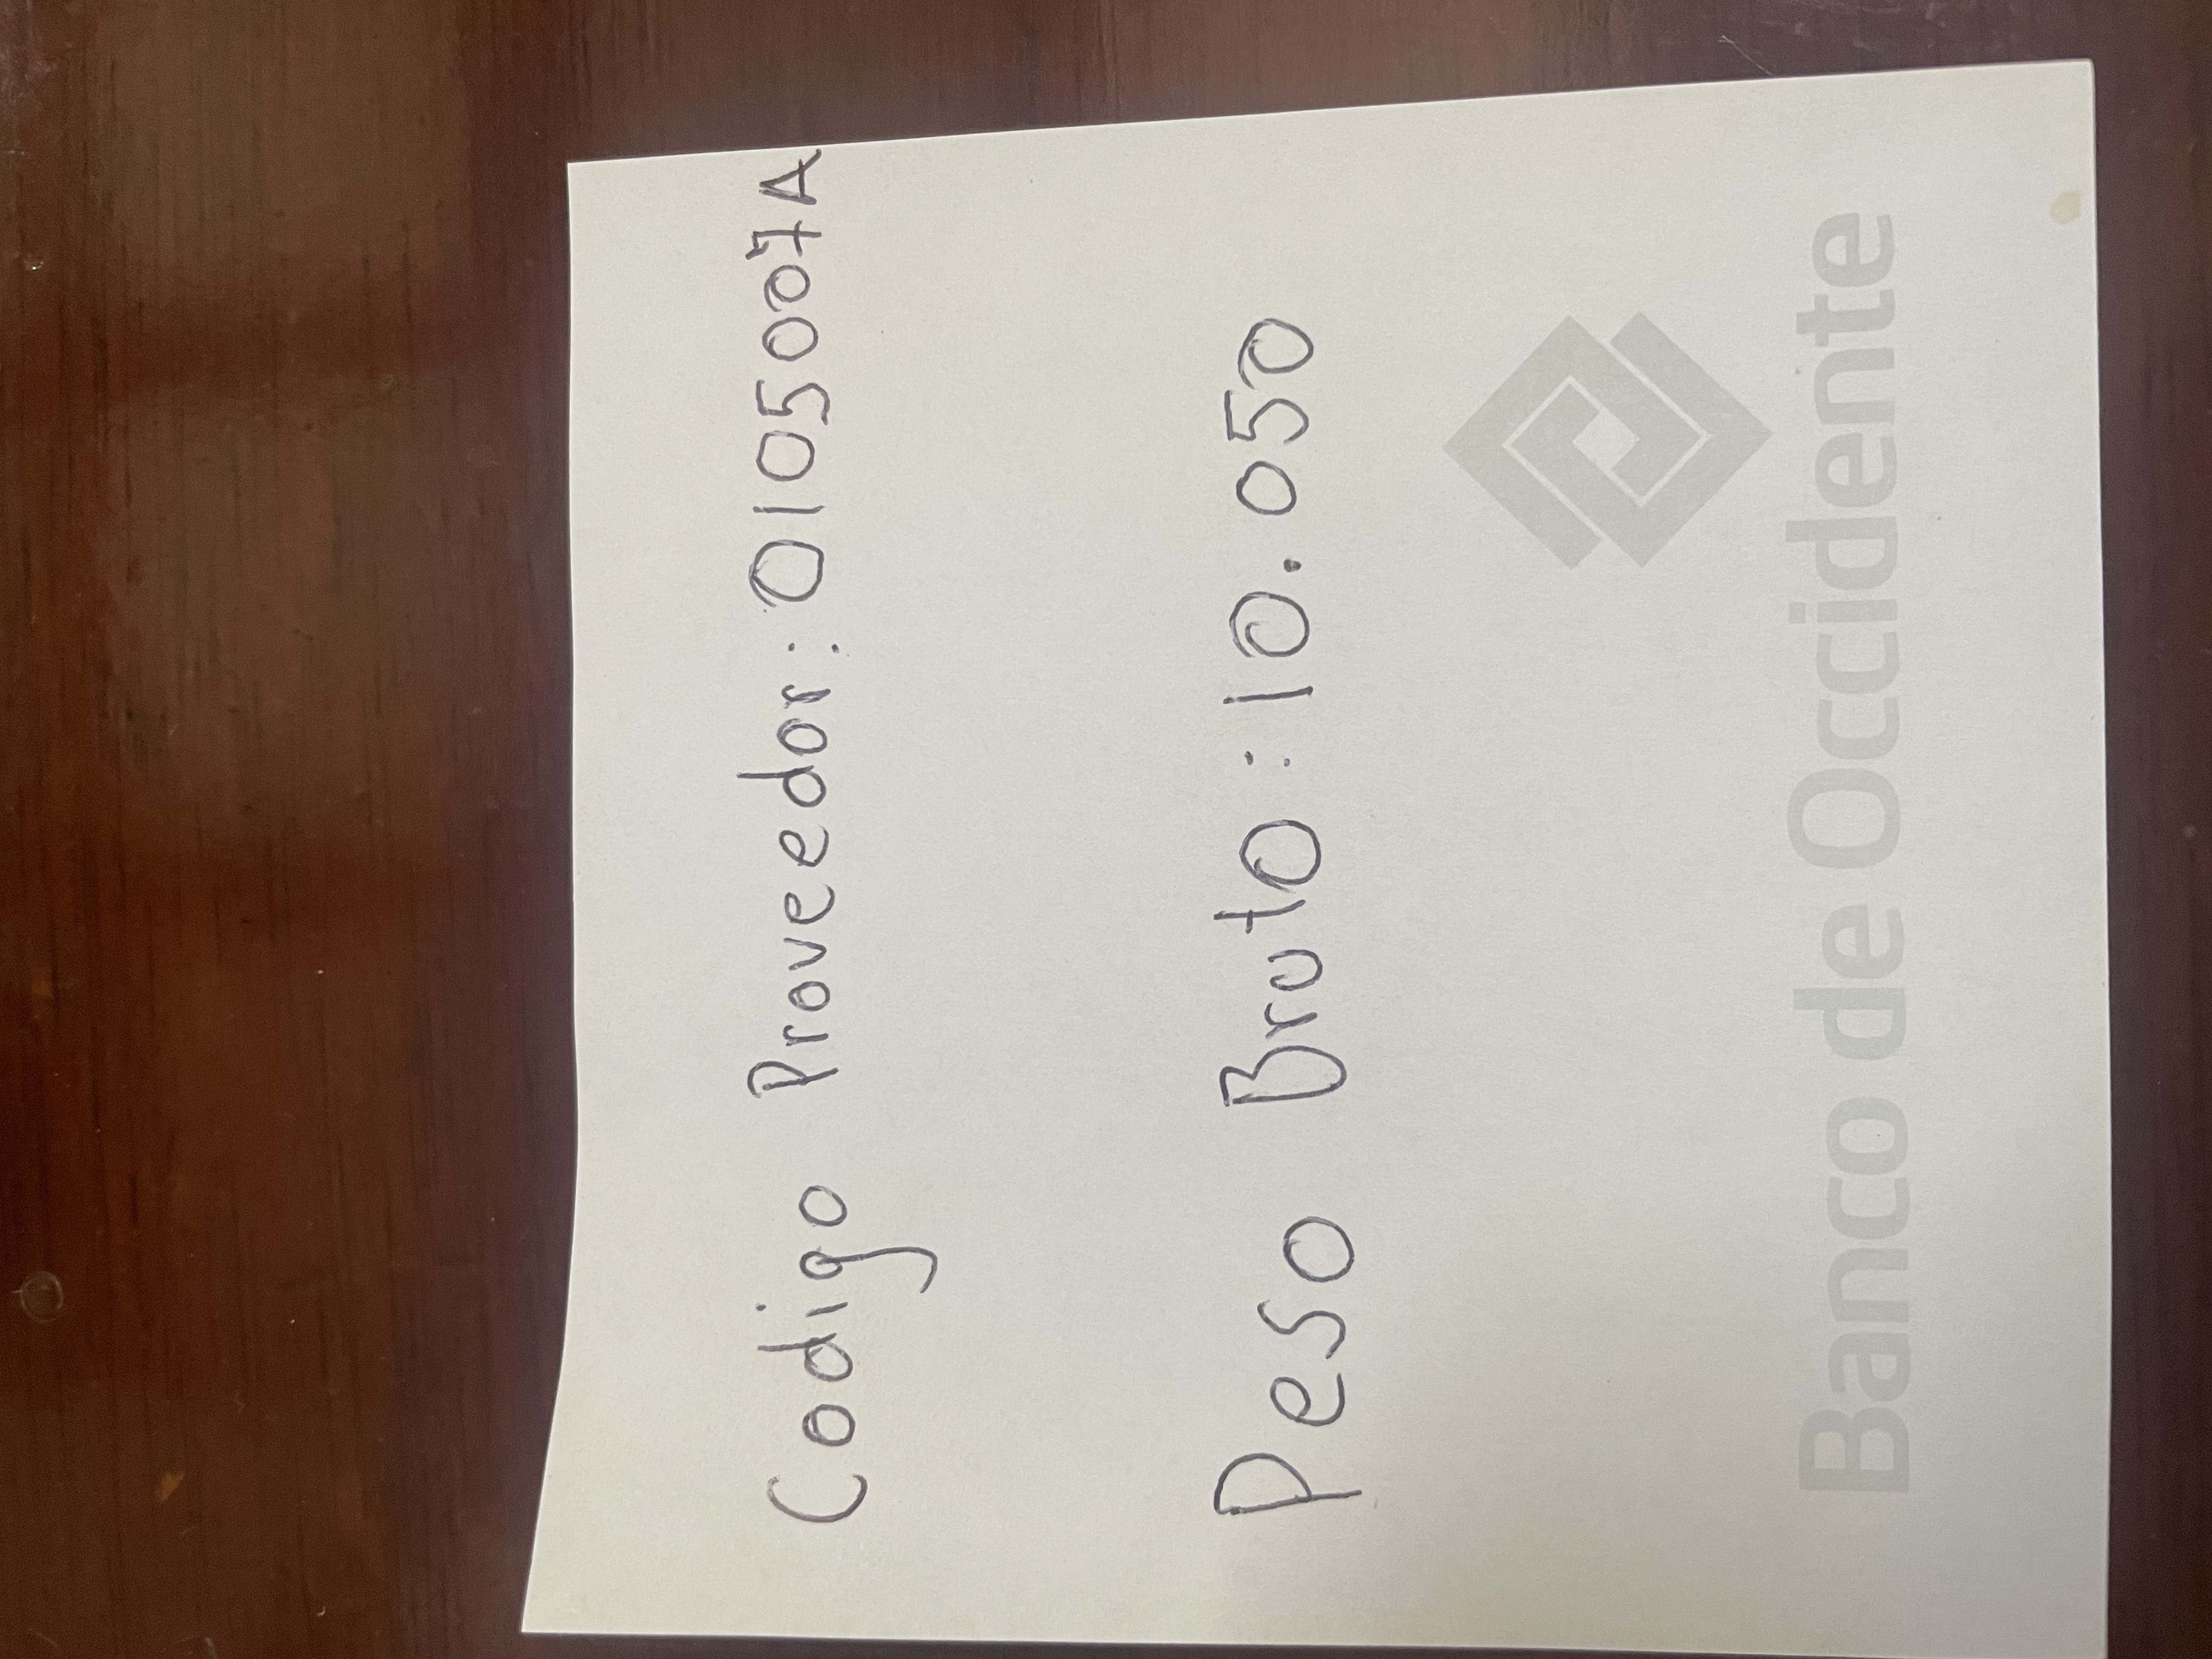 Codigo Proveedor: 0105007A
Peso Bruto: 10.050
Banco de Occidente